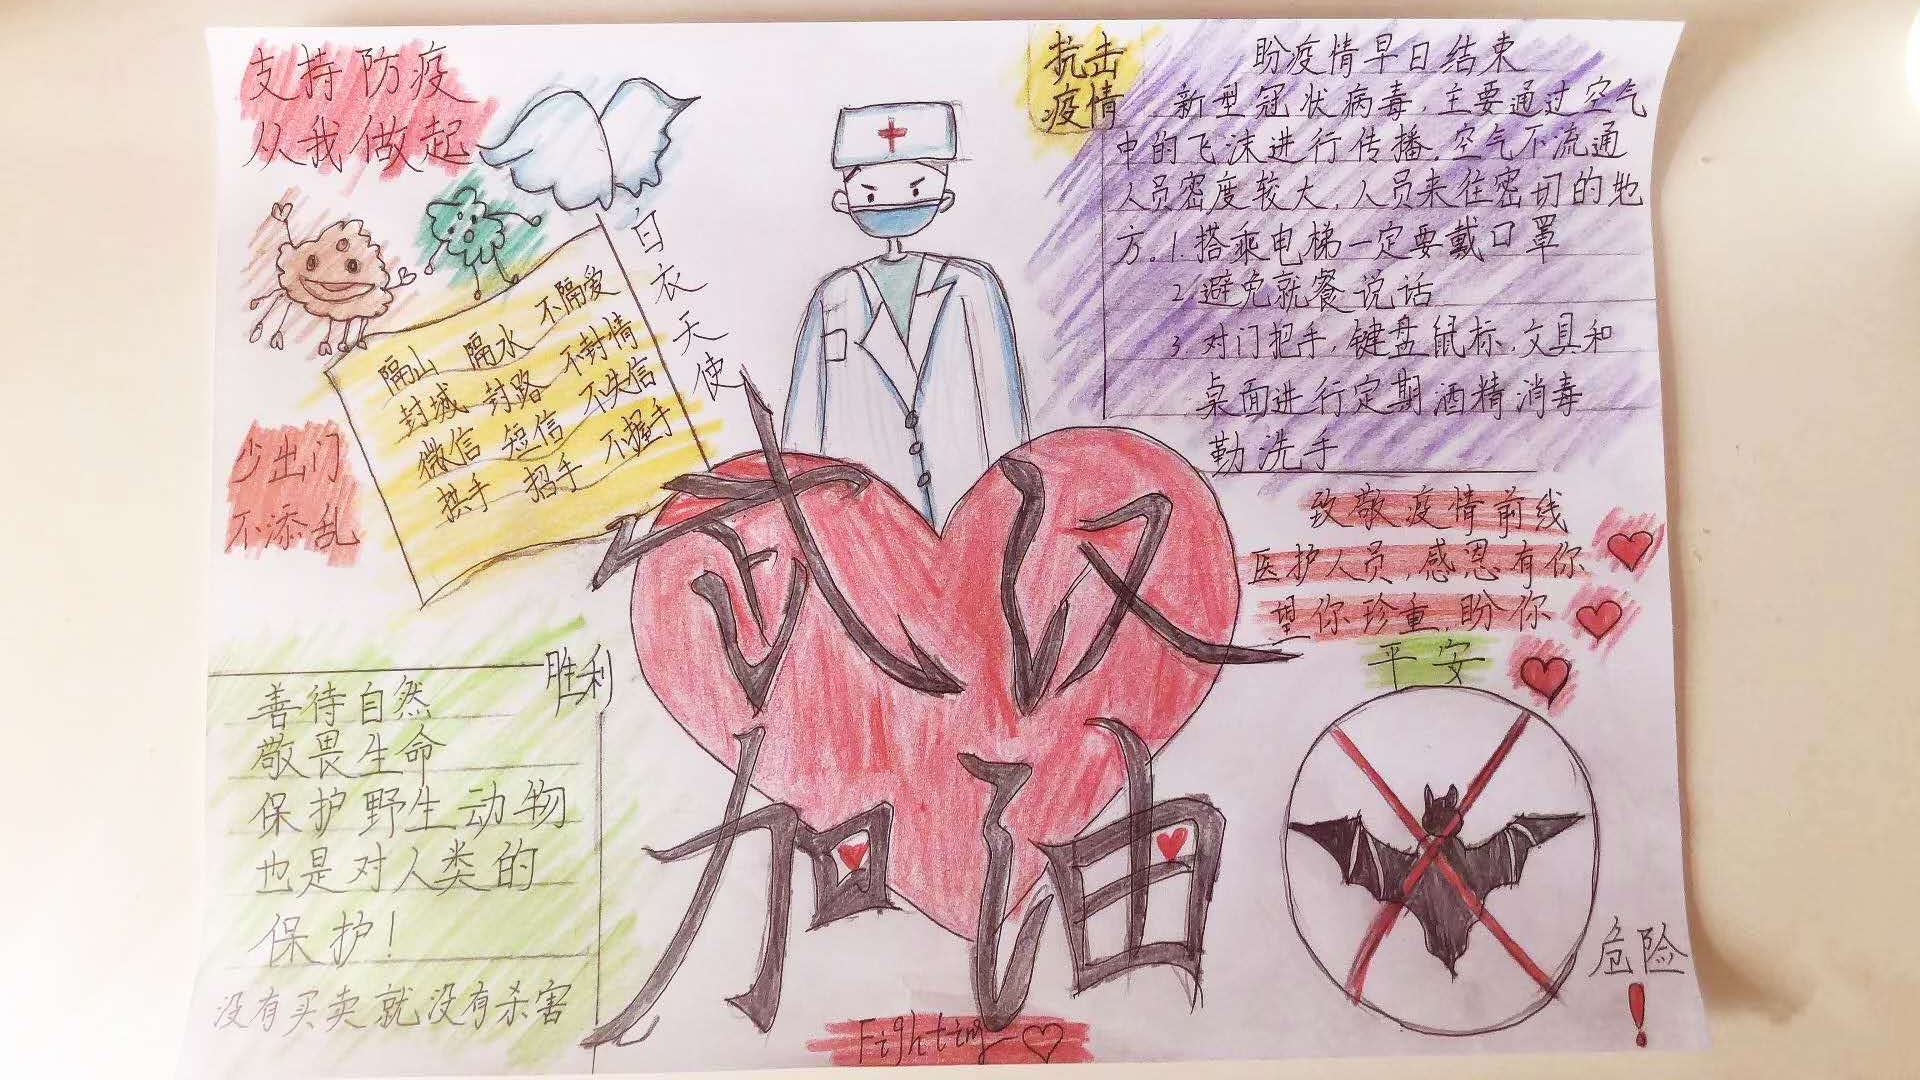 支持防疫
从我做起
白衣天使
隔山 隔水 不隔爱
封城 封路 不封情
微信 短信 不失信
拱手 招手 不握手
少出门
不添乱
胜利
善待自然
敬畏生命
保护野生动物
也是对人类的
保护!
没有买卖就没有杀害
武汉
加油
Fighting
抗击
疫情
盼疫情早日结束
新型冠状病毒,主要通过空气
中的飞沫进行传播,空气不流通
人员密度较大,人员来住密切的地
方。1.搭乘电梯一定要戴口罩
2.避免就餐说话
3.对门把手,键盘鼠标,文具和
桌面进行定期酒精消毒
勤洗手
致敬疫情前线
医护人员,感恩有你
望你珍重,盼你
平安
危险
!